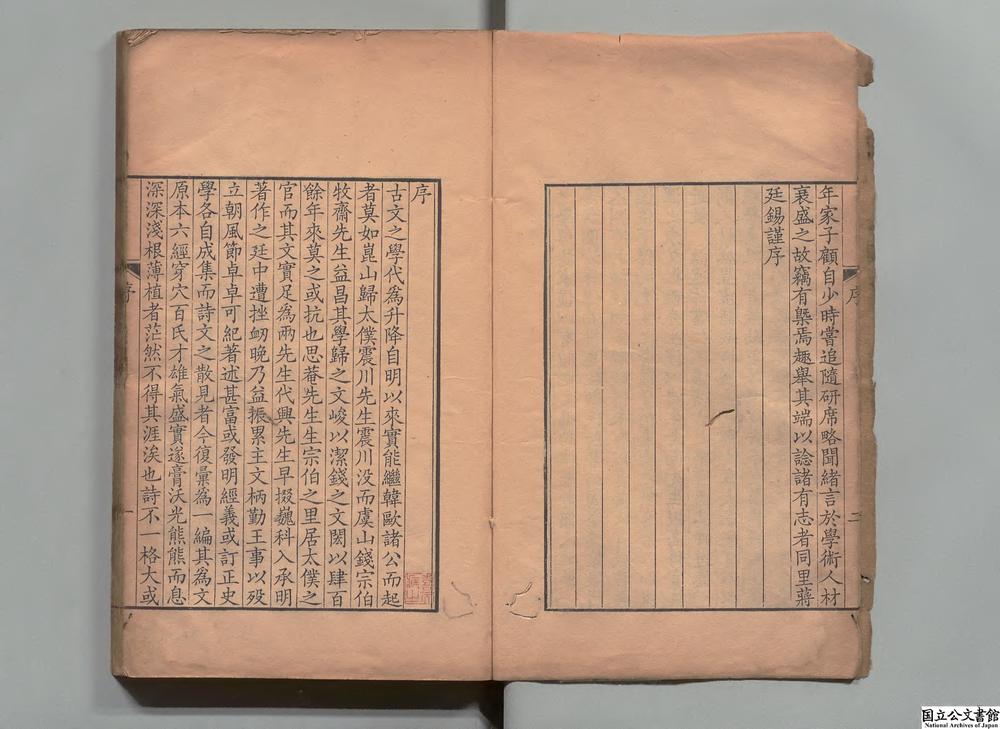 年家子顧自少時嘗追隨研席略聞緒言於學術人材
衰盛之故竊有槩焉趣舉其端以諗諸有志者同里蔣
廷錫謹序
序
二
序
古文之學代爲升降自明以來實能繼韓歐諸公而起
者莫如崑山歸太僕震川先生震川没而虞山錢宗伯
牧齋先生益昌其學歸之文峻以潔錢之文閎以肆百
餘年來莫之或抗也思菴先生生宗伯之里居太僕之
官而其文實足爲兩先生代興先生早掇巍科入承明
著作之廷中遭挫衂晚乃益振累主文柄勤王事以殁
立朝風節卓卓可紀著述甚富或發明經義或訂正史
學各自成集而詩文之散見者今復彙爲一編其爲文
原本六經穿穴百氏才雄氣盛實遂膏沃光熊熊而息
深深淺根薄植者茫然不得其涯涘也詩不一格大或
序
一
国立公文書館
National Archives of Japan